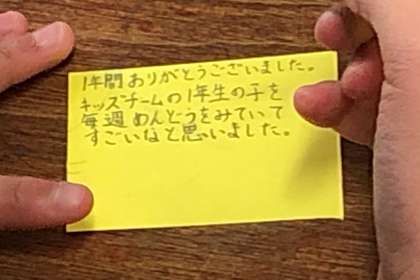 1年間ありがとうございました。
キッズチームの1年生の子を
毎週めんどうをみていて
すごいなと思いました。